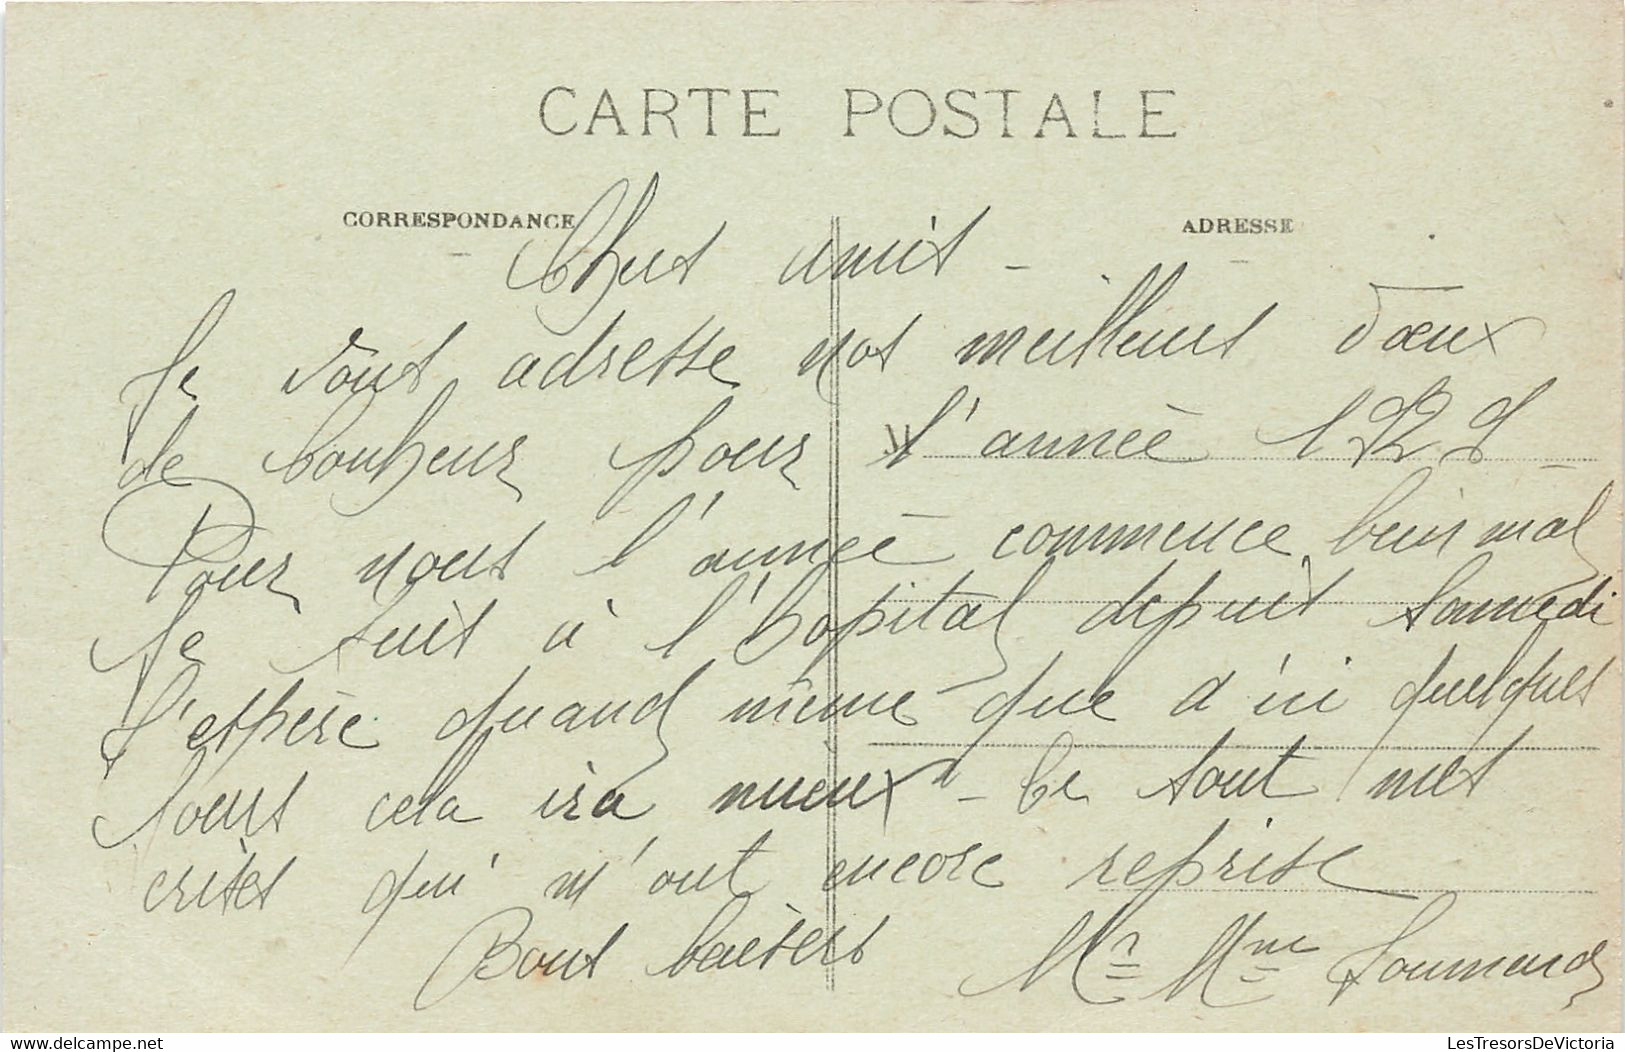 CARTE POSTALE
CORRESPONDANCE
ADRESSE
Chers amis -
Je vous adresse nos meilleurs vœux
de bonheur pour l'année
Pour nous l'année commence bien mal
Je suis à l'hopital depuis Samedi
J'espère quand même que d'ici quelques
Jours cela ira mieux - Ce sont mes
crises qui m'ont encore reprise
Bons baisers Mr Mme
LesTresorsDeVictoria
www.delcampe.net